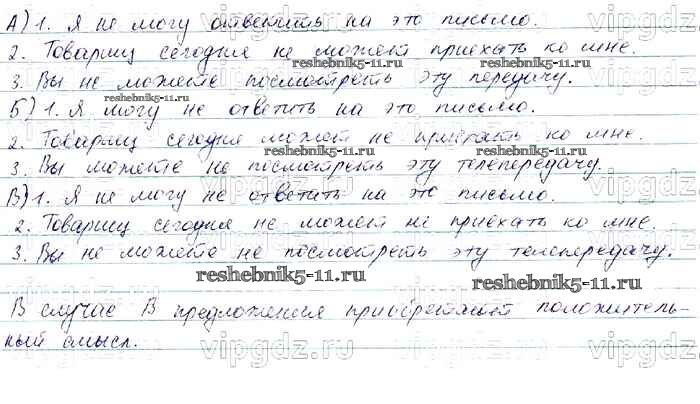 А) 1. Я не могу ответить на это письмо.
2. Товарищ сегодня не может приехать ко мне.
3. Вы не можете посмотреть эту передачу.
Б) 1. Я могу не ответить на это письмо.
2. Товарищ сегодня может не приехать ко мне.
3. Вы можете не посмотреть эту телепередачу.
В) 1. Я не могу не ответить на это письмо.
2. Товарищ сегодня не может не приехать ко мне.
3. Вы не можете не посмотреть эту телепередачу.
reshebnik5-11.ru
В случае В предложения приобретают положитель-
ный смысл.
vipgdz.ru